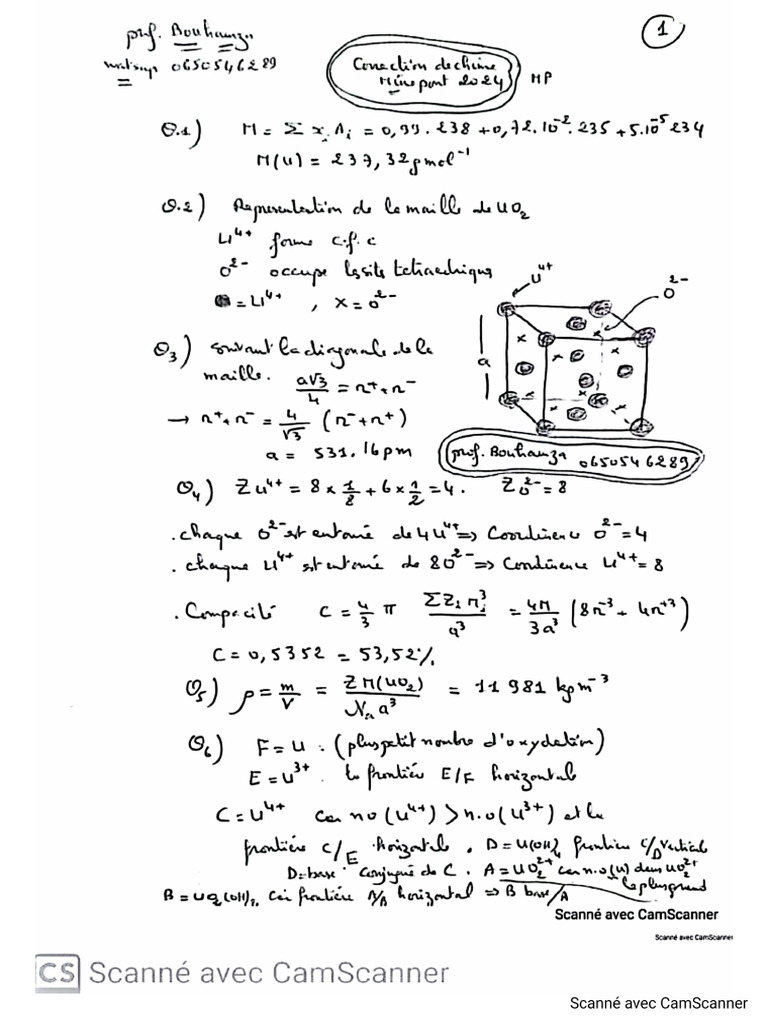 prof. Bouhamza
1
watsup 0650546289
Correction de chimie
Mine pont 2024
MP
Q.1) M = Σ xᵢ Aᵢ = 0,99.238 + 0,72.10⁻².235 + 5.10⁻⁵ 234
M(U) = 237,32 g mol⁻¹
Q.2) Representation de la maille de UO₂
U⁴⁺ forme c.f.c
O²⁻ occupe les site tetraedrique
= U⁴⁺ , x = O²⁻
U⁴⁺
O²⁻
a
Q3) suivant la diagonale de la
maille. a√3/4 = r⁺ + r⁻
→ r⁺ + r⁻ = 4/√3 (r⁻ + r⁺)
a = 531.16 pm
prof. Bouhamza 0650546289
Q4) Z U⁴⁺ = 8 × 1/8 + 6 × 1/2 = 4. Z O²⁻ = 8
. chaque O²⁻ est entouré de 4 U⁴⁺ ⇒ Coordinence O²⁻ = 4
. chaque U⁴⁺ est entouré de 8 O²⁻ ⇒ Coordinence U⁴⁺ = 8
. Compacité C = 4/3 π Σ Zᵢ rᵢ³/a³ = 4π/3a³ (8r⁻³ + 4r⁺³)
C = 0,5352 = 53,52%
Q5) ρ = m/V = Z M(UO₂)/Nₐ a³ = 11 981 kg m⁻³
Q6) F = U : (plus petit nombre d'oxydation)
E = U³⁺ . la frontière E/F horizontale
C = U⁴⁺ car no(U⁴⁺) > n.o(U³⁺) et la
frontière C/E horizontale . D = U(OH)₄ frontière C/D verticale
D = base conjugué de C . A = UO₂²⁺ car n.o(U) dans UO₂²⁺
le plus grand
B = UO₂(OH)₂ car frontière A/B horizontal ⇒ B base/A
Scanné avec CamScanner
Scanné avec CamScanner
CS Scanné avec CamScanner
Scanné avec CamScanner